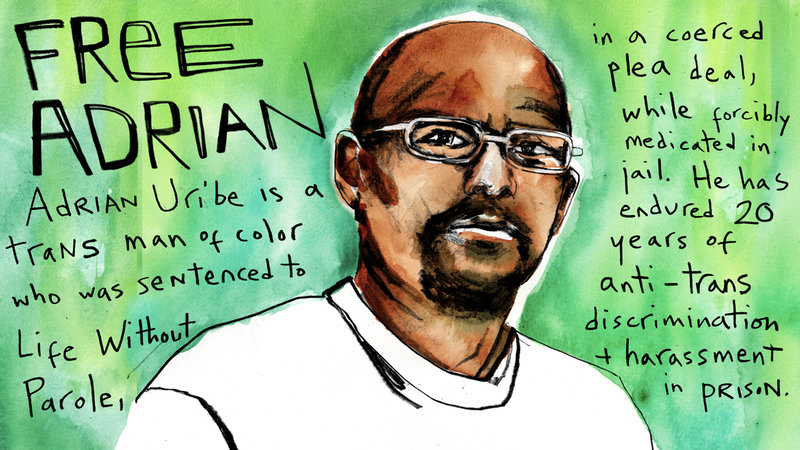 FREE
ADRIAN
ADRIAN Uribe is a
trans man of color
who was sentenced to
Life Without
Parole,
in a coerced
plea deal,
while forcibly
medicated in
jail. He has
endured 20
years of
anti-trans
discrimination
+ harassment
in prison.